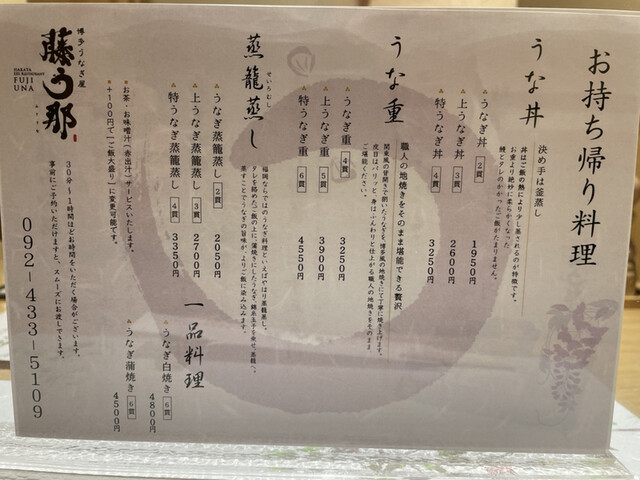 お持ち帰り料理
うな丼
決め手は釜蒸し
丼はご飯の熱により少し蒸されるのが特徴です。
お重より絶妙に柔らかくなった
鰻とタレのかかったご飯がたまりません。
うなぎ丼 2貫 1950円
上うなぎ丼 3貫 2600円
特うなぎ丼 4貫 3250円
うな重
職人の地焼きをそのまま堪能できる贅沢
関東風の背開きで捌いたうなぎを、博多風の地焼きにて丁寧に焼き上げます。
皮目はパリッと、身はふんわりと仕上がる職人の地焼きをそのまま、
ご堪能ください。
うなぎ重 4貫 3250円
上うなぎ重 5貫 3900円
特うなぎ重 6貫 4550円
せいろむし
蒸籠蒸し
福岡ならではのうなぎ料理といえばやはり蒸籠蒸し。
タレを絡めたご飯の上に、蒲焼きにしたうなぎ、錦糸玉子を乗せ、蒸籠へ。
蒸すことでうなぎの旨味が、よりご飯に染み込みます。
うなぎ蒸籠蒸し 2貫 2050円
上うなぎ蒸籠蒸し 3貫 2700円
特うなぎ蒸籠蒸し 4貫 3350円
一品料理
うなぎ白焼き 6貫 4800円
うなぎ蒲焼き 6貫 4500円
お茶・お味噌汁(赤出汁)サービスいたします。
+100円で「ご飯大盛り」に変更可能です。
30分〜1時間ほどお時間をいただく場合がございます。
事前にご予約いただけますと、スムーズにお渡しできます。
博多うなぎ屋
藤う那
HAKATA
EEL RESTAURANT
FUJI
UNA
092-433-5109